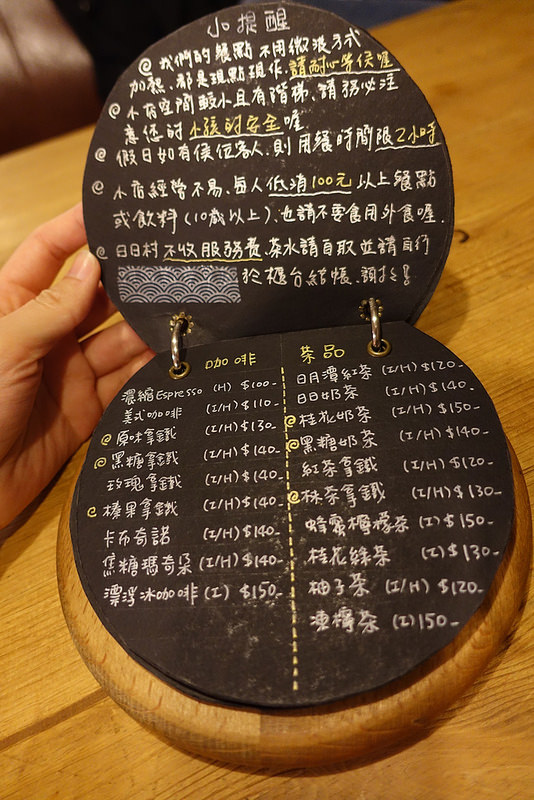 小提醒
@ 我們的餐點不用微波方式
加熱，都是現點現作，請耐心等侯喔
@ 小店空間較小且有階梯，請務必注
意您的小孩的安全喔
@ 假日如有侯位客人，則用餐時間限2小時
@ 小店經營不易，每人低消100元以上餐點
或飲料(10歲以上)，也請不要食用外食喔。
@ 日日村不收服務費，茶水請自取並請自行
於櫃台結帳，謝謝！
咖啡
濃縮Espresso (H) $100-
美式咖啡 (I/H) $110-
@ 原味拿鐵 (I/H) $130-
@ 黑糖拿鐵 (I/H) $140-
玫瑰拿鐵 (I/H) $140-
@ 榛果拿鐵 (I/H) $140-
卡布奇諾 (I/H) $140-
焦糖瑪奇朵 (I/H) $140-
漂浮冰咖啡 (I) $150-
茶品
日月潭紅茶 (I/H) $120-
日日奶茶 (I/H) $140-
@ 桂花奶茶 (I/H) $150-
@ 黑糖奶茶 (I/H) $140-
紅茶拿鐵 (I/H) $120-
@ 抹茶拿鐵 (I/H) $130-
蜂蜜檸檬茶 (I) $150-
桂花綠茶 (I) $130-
柚子茶 (I/H) $120-
凍檸茶 (I) 150-